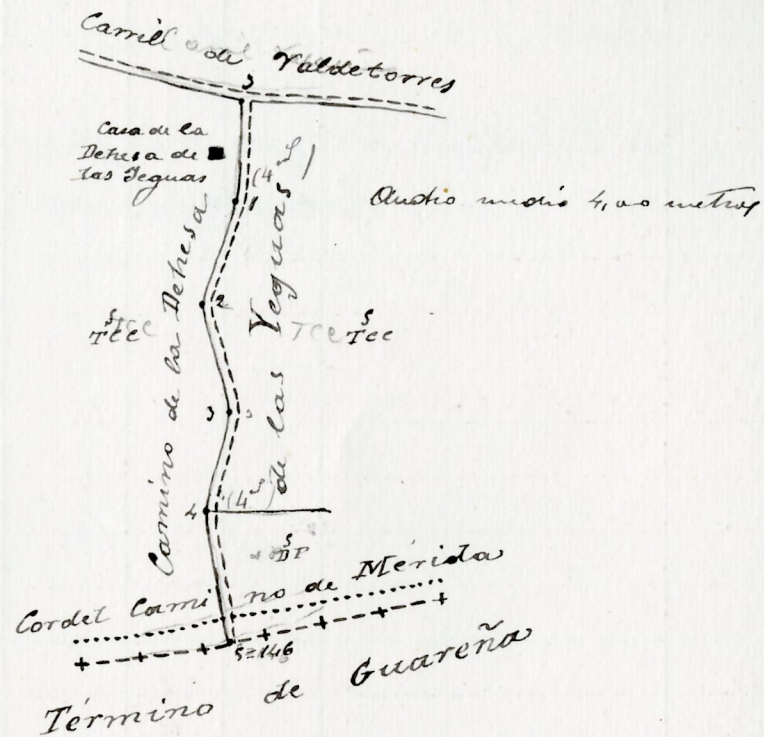 Carril de Valdetorres
Casa de la
Dehesa de
las Yeguas
(4
1
Ancho medio 4,00 metros
Camino de la Dehesa
de las Yeguas
2
TCC
TCC
3
4
(4
S
DP
Cordel Camino de Mérida
5=146
Término de Guareña